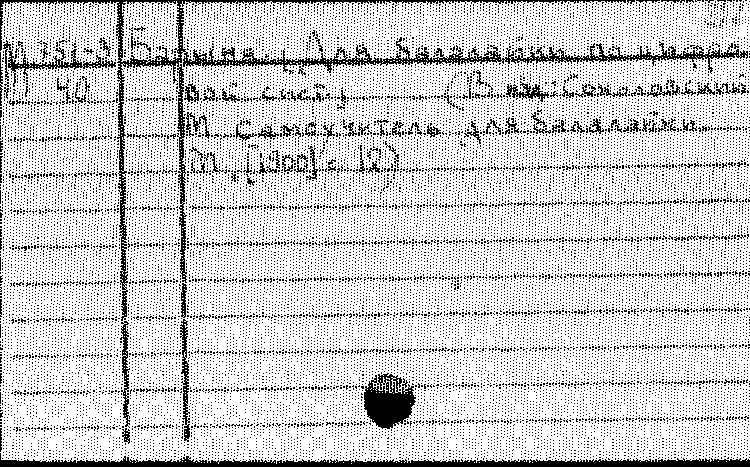 М 751-3 Барыня. [Для балалайки по цифро-
40 вой сист.] (В изд: Соколовский
М Самоучитель для балалайки.
М., [1900] с 12)